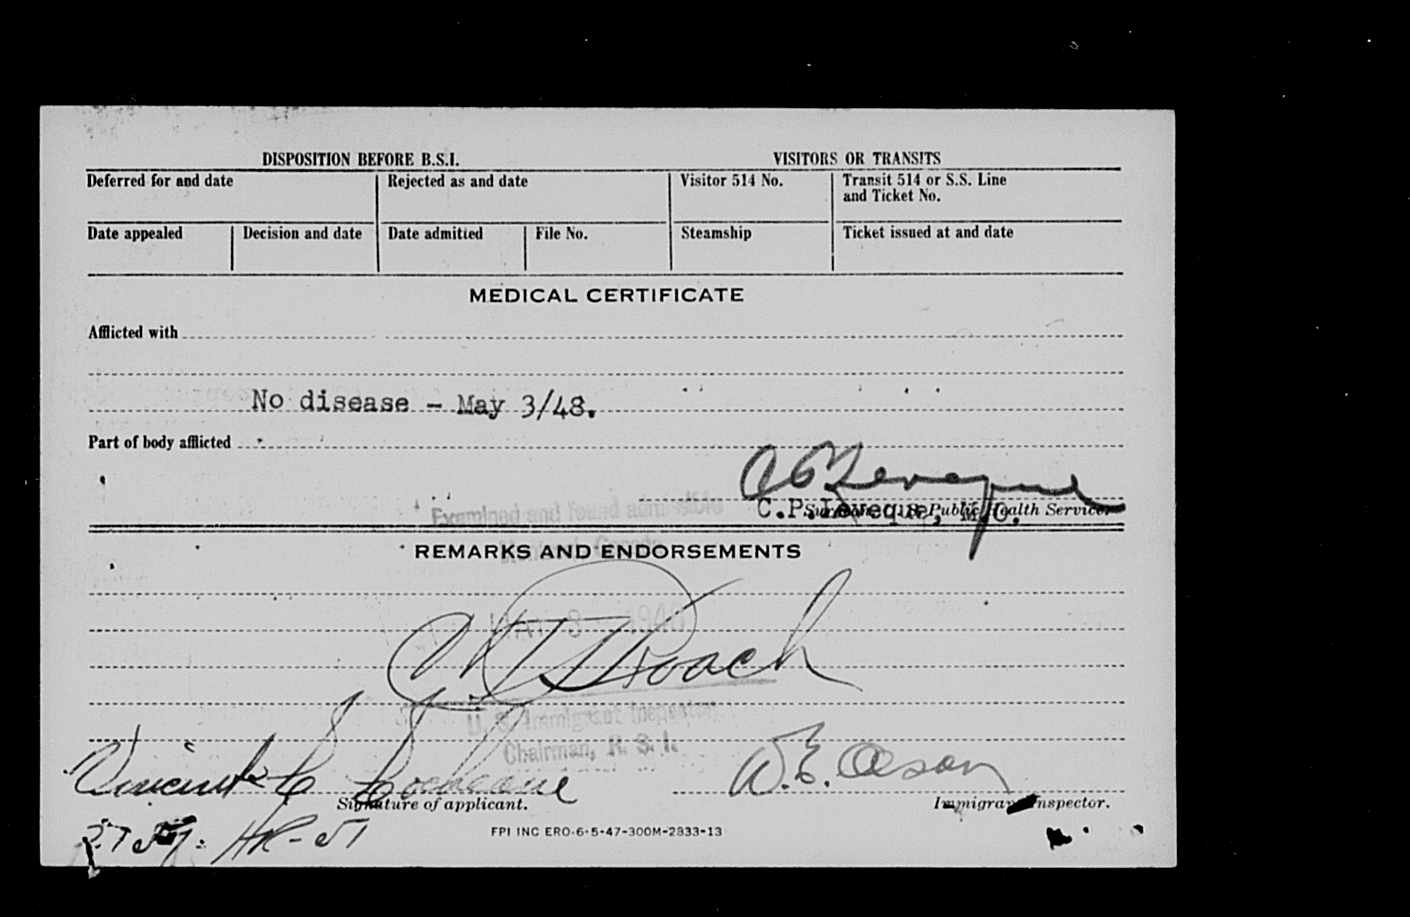 DISPOSITION BEFORE B.S.I. VISITORS OR TRANSITS
Deferred for and date Rejected as and date Visitor 514 No. Transit 514 or S.S. Line
and Ticket No.
Date appealed Decision and date Date admitted File No. Steamship Ticket issued at and date
MEDICAL CERTIFICATE
Afflicted with
No disease - May 3/48.
Part of body afflicted
C.P. Leveque, M.D.
Surgeon, U.S. Public Health Service.
Examined and found admissible
REMARKS AND ENDORSEMENTS
Montreal, Canada
MAY 3 1948
Roach
U. S. Immigrant Inspector
Chairman, B. S. I.
Vincent W. E. Olson
Signature of applicant. Immigrant Inspector.
FPI INC ERO-6-5-47-300M-2833-13